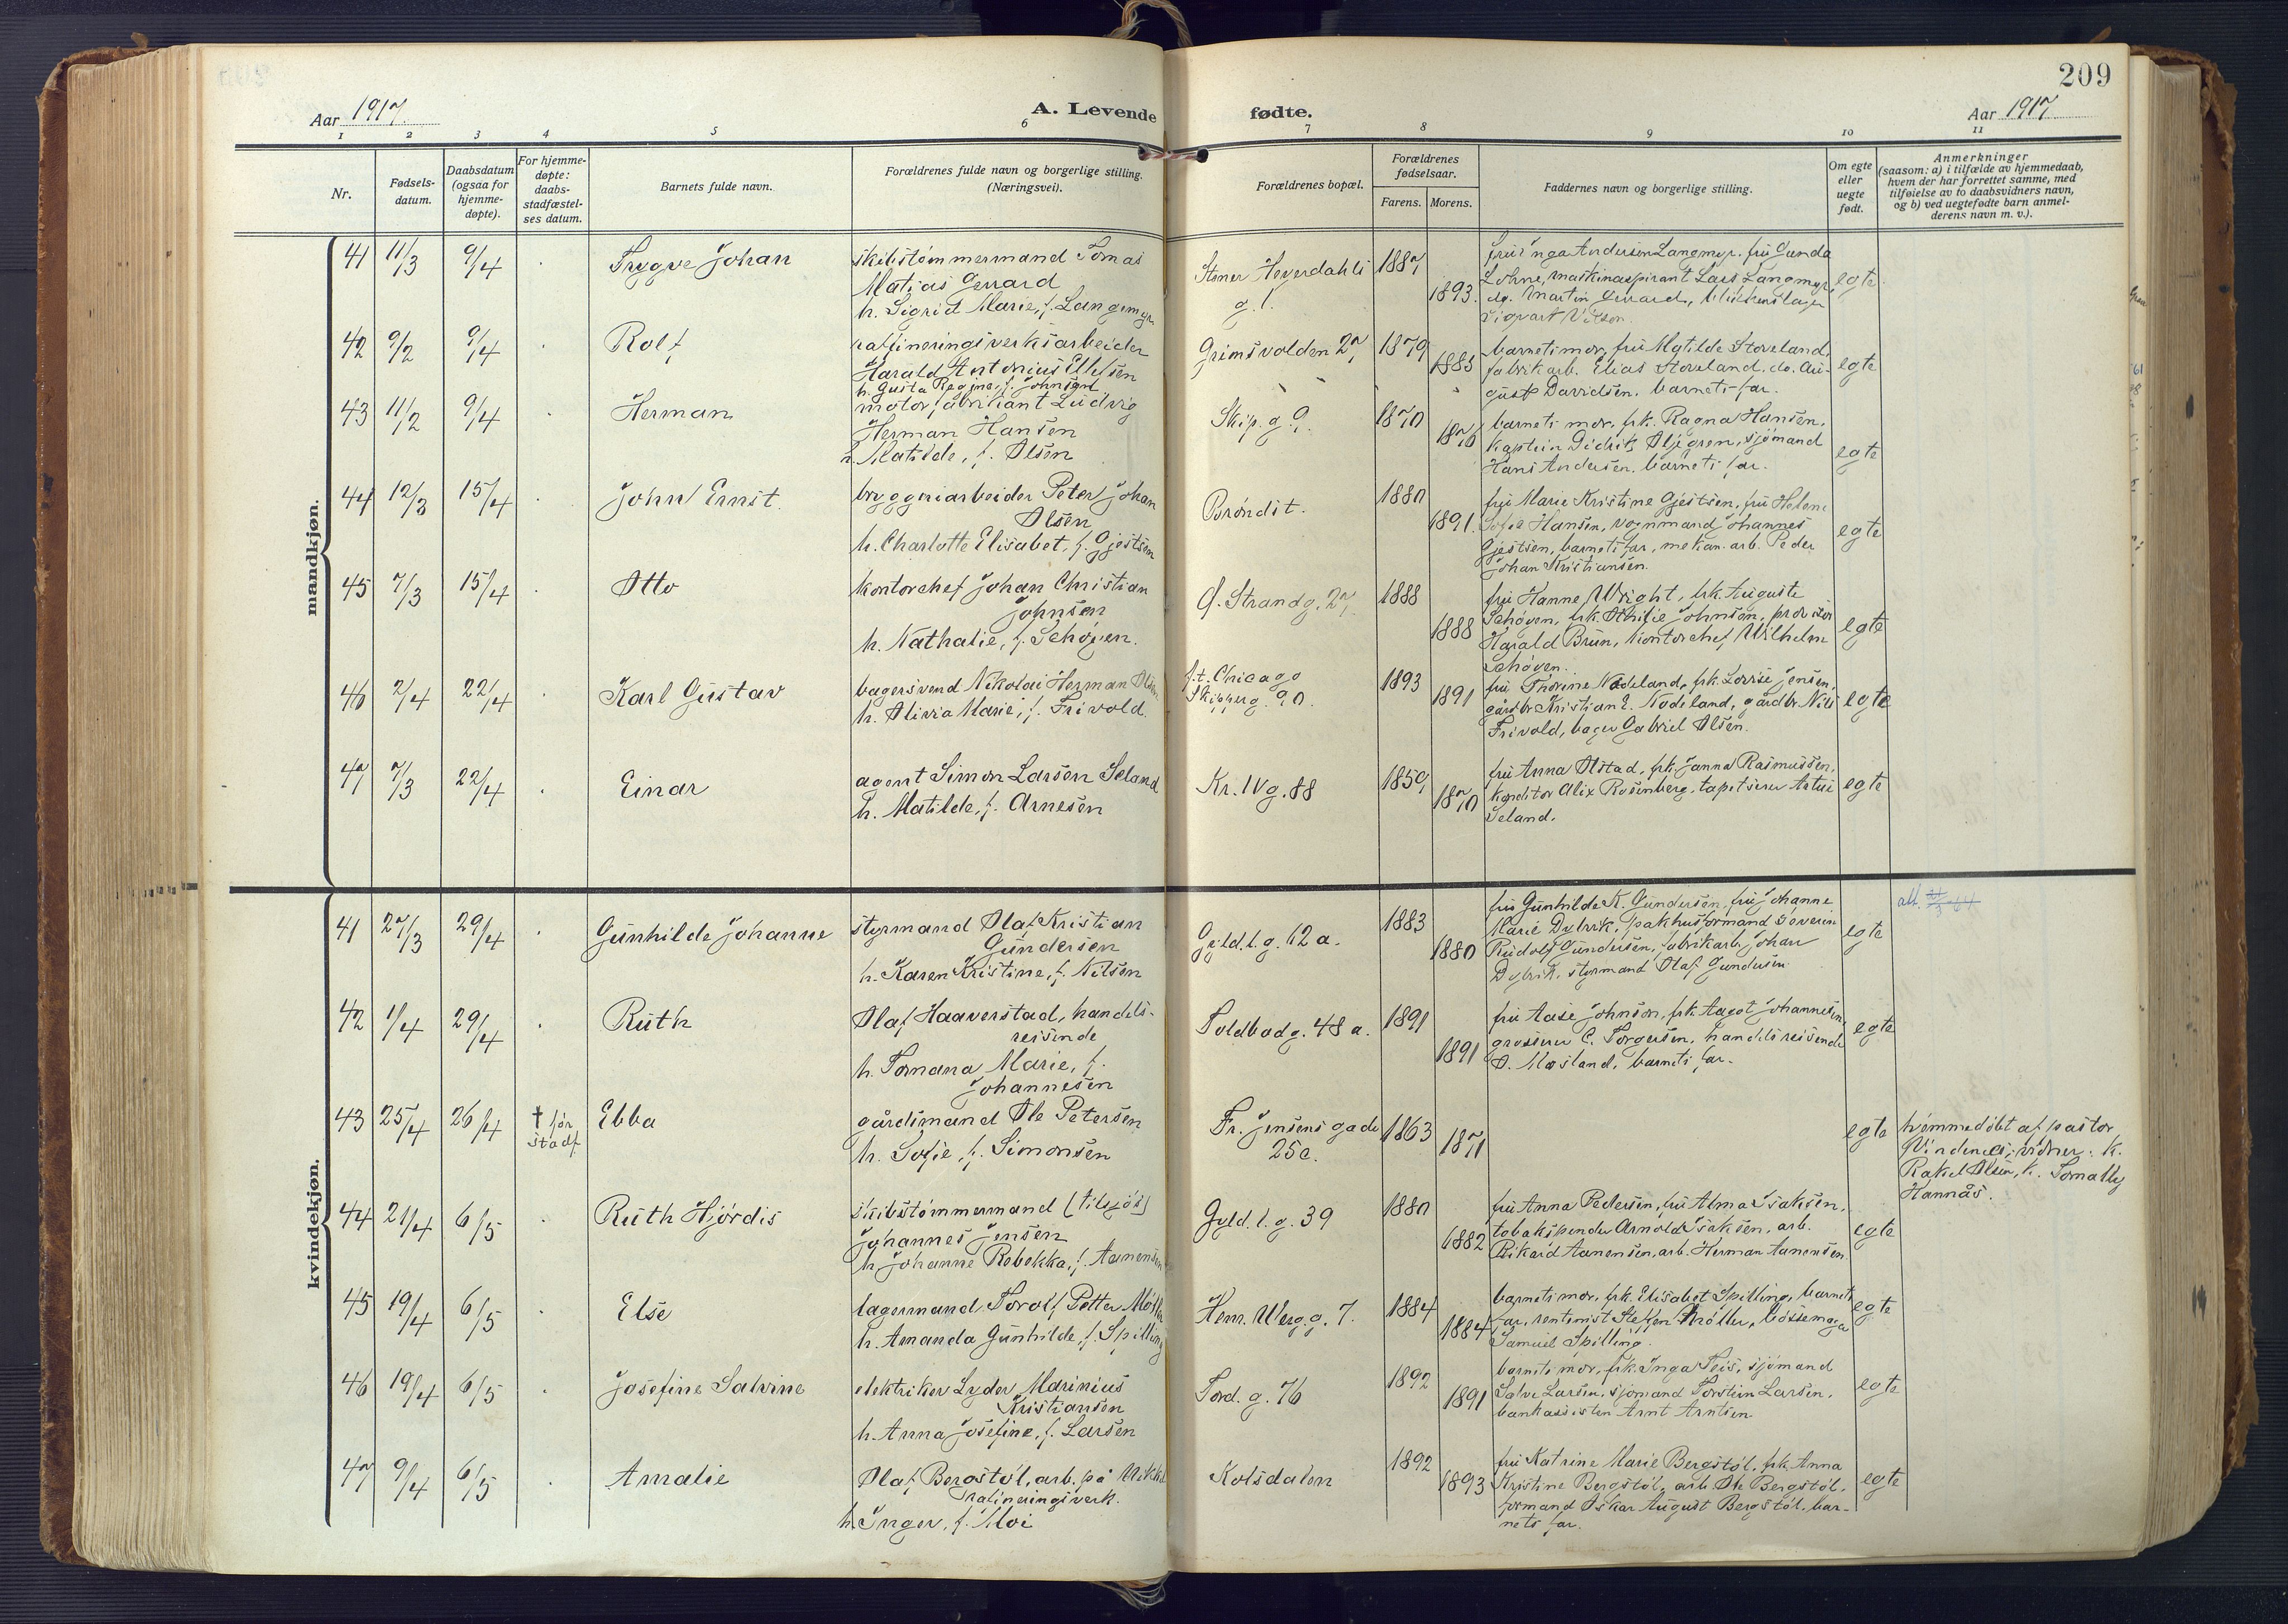 209
Aar 1917.
A. Levende
fødte.
Aar 1917
1 2 3 4 5 6 7 8 9 10 11
Nr.
Fødsels-
datum.
Daabsdatum
(ogsaa for
hjemme-
døpte).
For hjemme-
døpte:
daabs-
stadfæstel-
ses datum.
Barnets fulde navn.
Forældrenes fulde navn og borgerlige stilling.
(Næringsvei).
Forældrenes bopæl.
Forældrenes
fødselsaar.
Farens. Morens.
Faddernes navn og borgerlige stilling.
Om egte
eller
uegte
født.
Anmerkninger
(saasom: a) i tilfælde av hjemmedaab,
hvem der har forrettet samme, med
tilføielse av to daabsvidners navn,
og b) ved uegtefødte barn anmel-
derens navn m. v.).
mandkjøn.
41 11/3 9/4 Trygve Johan
skibstømmermand Tomas
Matias Gerrard
h. Sigrid Marie, f. Langemyr
g. l.
1887
1893.
fru Inga Andersen Langmyr, fru Gunda
Lohne, maskinaspirant Lars Langmyr,
do. Martin Gerrard,
Sigvart Nilsen.
egte
42 9/2 9/4 Rolf
raffineringsverksarbeider
Harald Antonius Ellefsen
h. Gusta Regine, f. Johnsen
Grimsvolden 27
1879
1885
barnets mor, fru Matilde Stoveland,
fabrikarb. Elias Stoveland, do. Au-
gust Davidsen, barnets far.
egte
43 11/2 9/4 Herman
motorfabrikant Ludvig
Herman Hansen
h. Matilde, f. Olsen
Skip. g. 9.
1870
1876
barnets mor, frk. Ragna Hansen,
kaptein Didrik Oljegren, sjømand
Hans Andersen, barnets far.
egte
44 12/3 15/4 John Ernst.
bryggeriarbeider Peter Johan
Olsen
h. Charlotte Elisabet, f. Gjestsen
Brøndst.
1880
1891.
fru Marie Kristine Gjestsen, fru Helene
Sofie Hansen, vognmand Johannes
Gjestsen, barnets far, mekan. arb. Peder
Johan Kristiansen.
egte
45 7/3 15/4 Otto
kontorchef Johan Christian
Johnsen
h. Nathalie, f. Schøyen.
Ø. Strandg. 27.
1888
1888
fru Hanne Wright, frk. Auguste
Schøyen, frk. Othilie Johnsen, provisor
Harald Brun, kontorchef Wilhelm
Schøyen.
egte
46 2/4 22/4 Karl Gustav
bagersvend Nikolai Herman Olsen
h. Olivia Marie, f. Frivold.
f.t. Chicago
Skipperg. 90.
1893
1891
fru Thorine Nodeland, frk. Lovise Jensen,
gårdbr. Kristian E. Nodeland, gårdbr. Nils
Frivold, bager Gabriel Olsen.
egte
47 7/3 22/4 Einar
agent Simon Larsen Seland
h. Matilde, f. Arnesen
Kr. IV g. 88
1859
1870
fru Anna Olstad, frk. Janna Rasmussen,
konditor Alix Rosenberg, tapetserer
Seland.
egte
kvindekjøn.
41 27/3 29/4 Gunhilde Johanne
styrmand Olaf Kristian
Gundersen
h. Karen Kristine, f. Nilsen
Gyld. l. g. 12 a.
1883
1880
fru Gunhilde K. Gundersen, fru Johanne
Marie Dybvik, pakhusformand Severin
Rudolf Gundersen, fabrikarb. Johan
Dybvik, styrmand Olaf Gundersen
egte
att.
42 1/4 29/4 Ruth
Olaf Haaverstad, handels-
reisende
h. Tomana Marie, f.
Johannesen
Toldbodg. 48 a.
1891
1891
fru Aase Johnson, frk. Aagot Johannesen,
grosserer C. Torgersen, handelsreisende
O. Mosland, barnets far.
egte
43 25/4 26/4 † før
stadf.
Ebba
gårdsmand Ole Petersen
h. Sofie, f. Simonsen
Fr. Jensens gade
25 c.
1863
1871
egte
hjemmedøbt af pastor
Vindenes; vidner: k.
Rakel Olsen, k.
Hannås.
44 21/4 6/5 Ruth Hjørdis
skibstømmermand (tilsjøs)
Johannes Jensen
h. Johanne Rebekka, f. Aanensen
Gyld. l. g. 39
1880
1882
fru Anna Pedersen, fru Alma Isaksen,
tobakspinder Arnold Isaksen, arb.
Rikard Aanensen, arb. Herman Aanensen
egte
45 19/4 6/5 Else
lagermand Torolf Petter Møller
h. Amanda Gunhilde, f. Spilling
Henr. Werg. g. 7.
1884
1884
barnets mor, frk. Elisabet Spilling, barnets
far, rentenist Steffen Møller, bøssemager
Samuel Spilling.
egte
46 19/4 6/5 Josefine Salvine
elektriker Lyder Marinius
Kristiansen
h. Anna Josefine, f. Larsen
Tord. g. 76
1892
1891
barnets mor, frk. Inga Teis, sjømand
Salve Larsen, sjømand Torstein Larsen,
bankassistent Arnt Arntsen
egte
47 9/4 6/5 Amalie
Olaf Bergstøl, arb. på Nikkel
rafineringsverk.
h. Inger, f. Moi
Kolsdalen
1892
1893
fru Katrine Marie Bergstøl, frk. Anna
Kristine Bergstøl, arb. Ole Bergstøl,
formand Oskar August Bergstøl, bar-
nets far.
egte